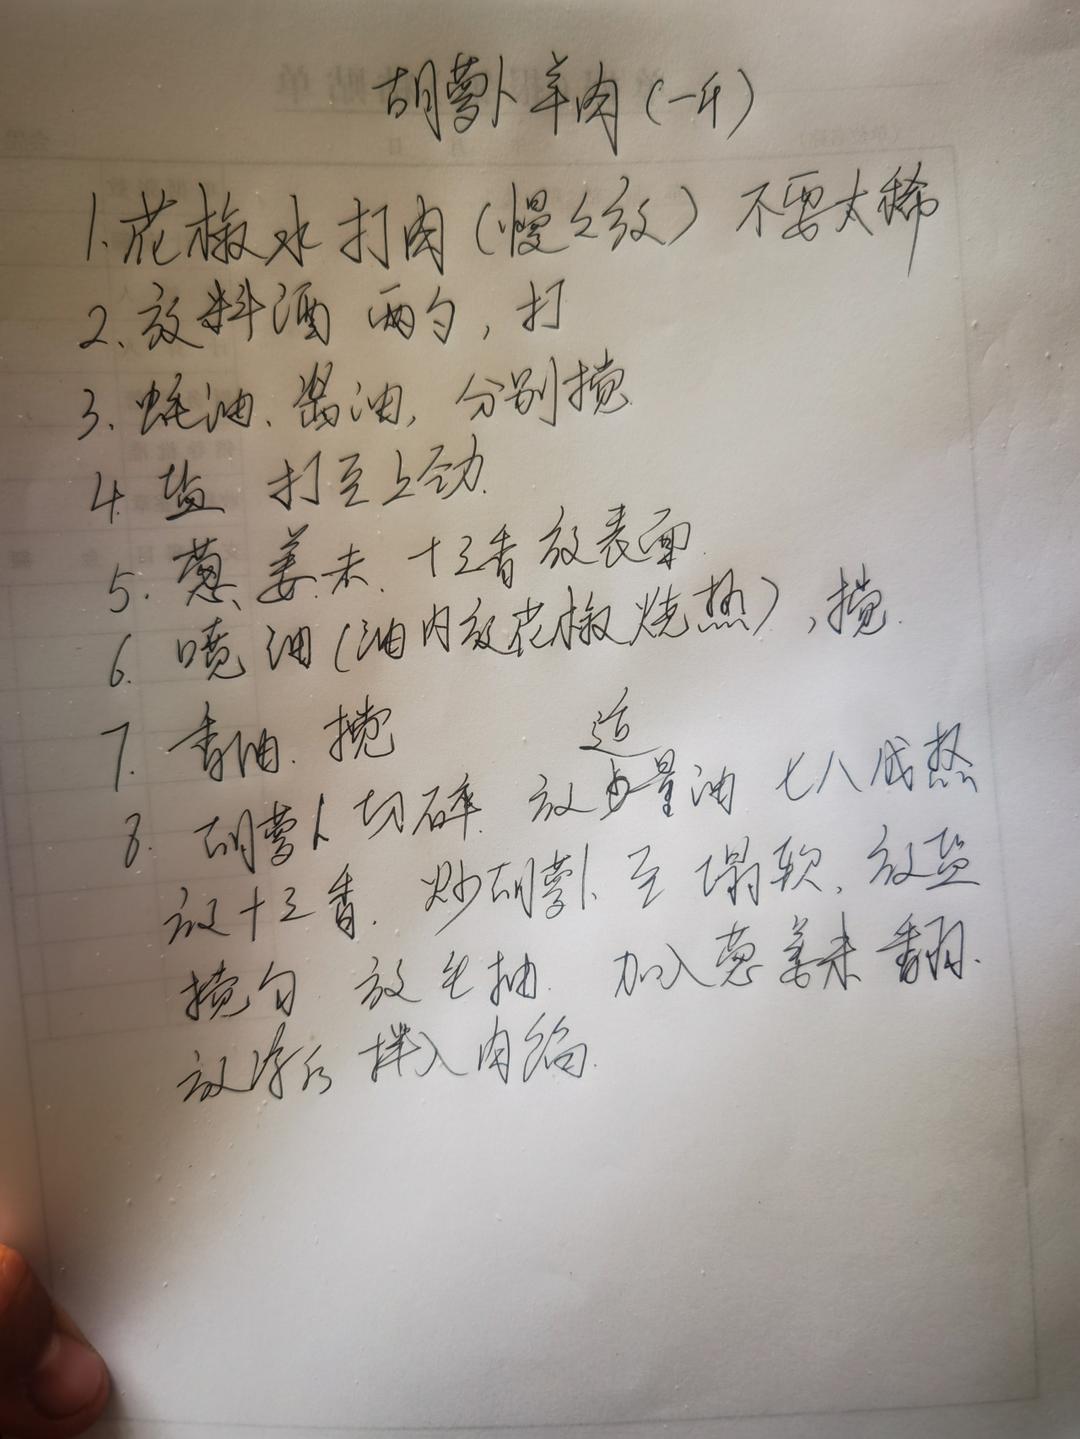 胡萝卜羊肉(一斤)
1.花椒水打肉(慢々放)不要太稀
2、放料酒 两勺,打
3、蚝油、酱油,分别搅
4.盐 打至上劲.
5.葱、姜末、十三香放表面.
6.喷油(油内放花椒烧热),搅.
7.香油.搅
适
8.胡萝卜切碎.放少量油 七八成热
放十三香.炒胡萝卜至塌软、放盐
搅匀 放生抽. 加入葱姜末翻.
放凉后拌入肉馅.